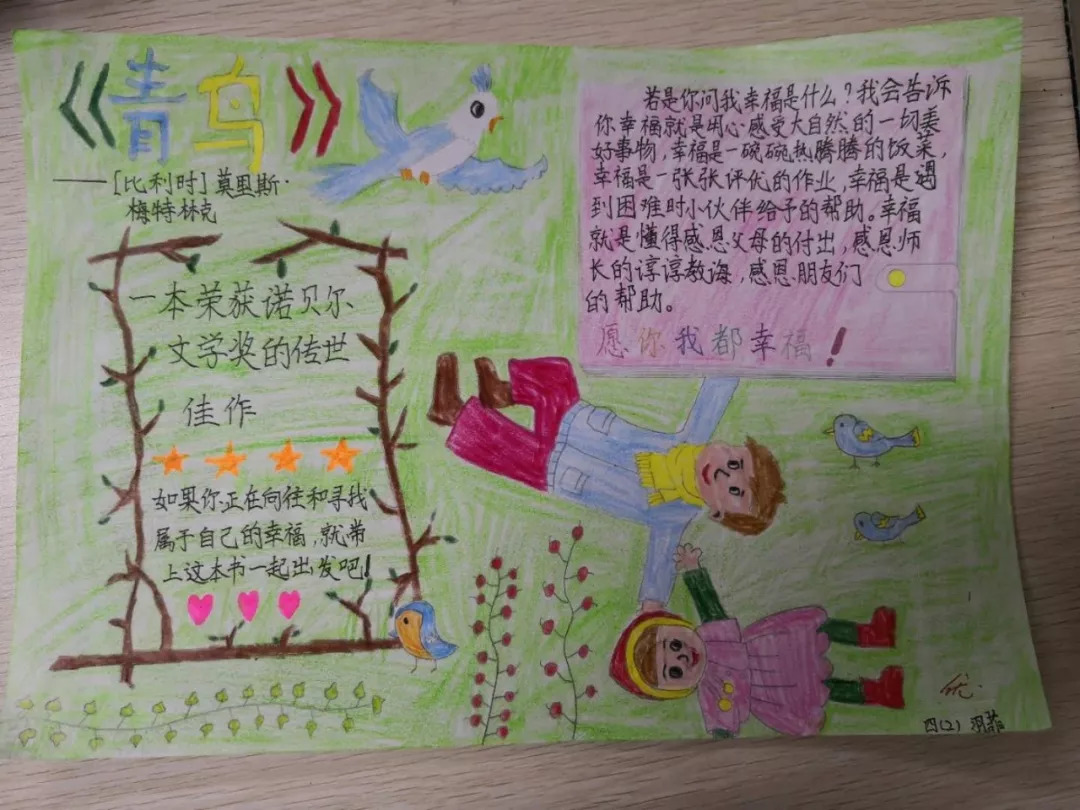 《青鸟》
——[比利时]莫里斯·
梅特林克
一本荣获诺贝尔
文学奖的传世
佳作
如果你正在向往和寻找
属于自己的幸福,就带
上这本书一起出发吧!
若是你问我幸福是什么?我会告诉
你幸福就是用心感受大自然的一切美
好事物,幸福是一碗碗热腾腾的饭菜,
幸福是一张张评优的作业,幸福是遇
到困难时小伙伴给予的帮助。幸福
就是懂得感恩父母的付出,感恩师
长的谆谆教诲,感恩朋友们
的帮助。
愿你我都幸福!
优.
四(2)